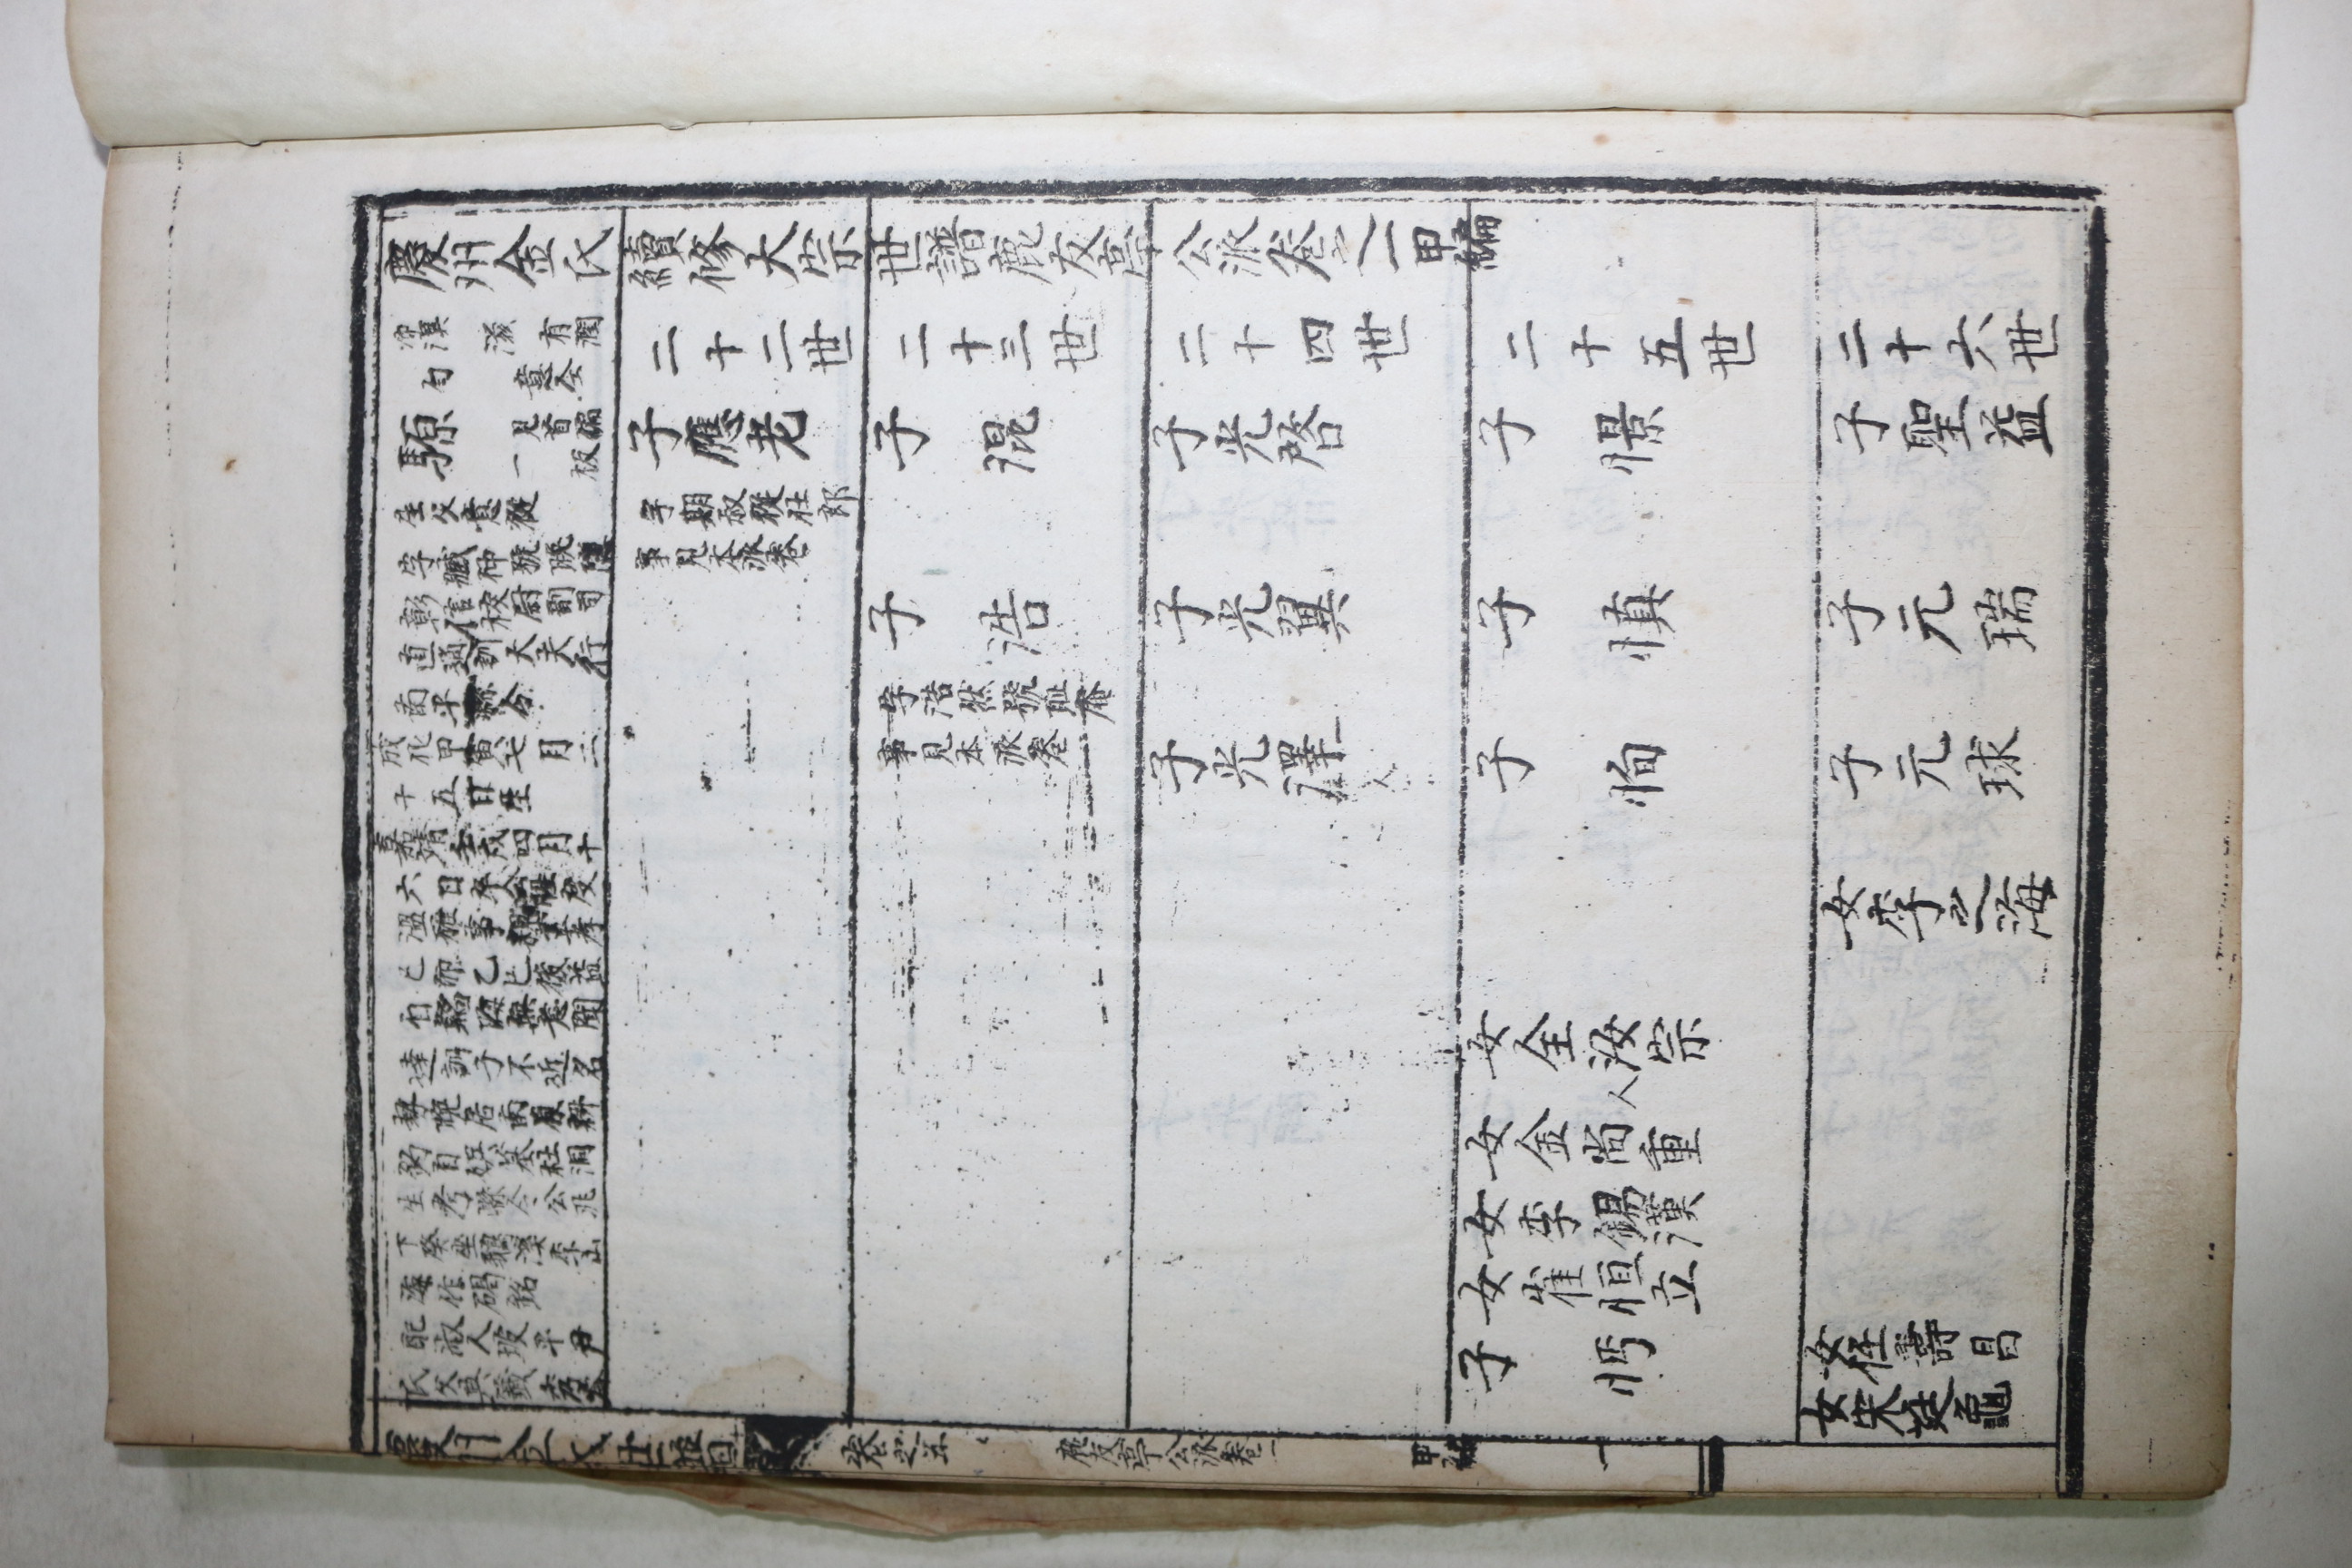 慶州金氏續修大宗世譜鹿友亭公派卷之一甲編
冲漢 滋 有潤
勻 意全
見首編
騵 一板
生父意從
字 仲號晩
彰信校尉副司
直通訓大夫行
南平縣令
成化甲寅七月二
十五日生
嘉靖壬戌四月十
六日卒公 度
溫雅事 孝
己卯乙巳後益
自韜晦無意聞
達訓子不近名
晩居南
釣自娛墓杜洞
生考 令公兆
下癸坐 溪李山
海作碣銘
配淑人坡平尹
氏父
二十二世
子應老
字期叔從仕郎
事見本派卷
二十三世
子混
子浩
字浩然號耻庵
事見本派卷
二十四世
子光啓
子光翼
子光澤
二十五世
子憬
子愼
子恂
女全汝宗
人
女金尚重
女李錫漢
女崔恒立
子㥃
二十六世
子聖益
子元瑞
子元球
女李之海
女任壽昌
女宋廷龜
慶州金氏世譜
卷之五
鹿友亭公派卷一
甲編
一